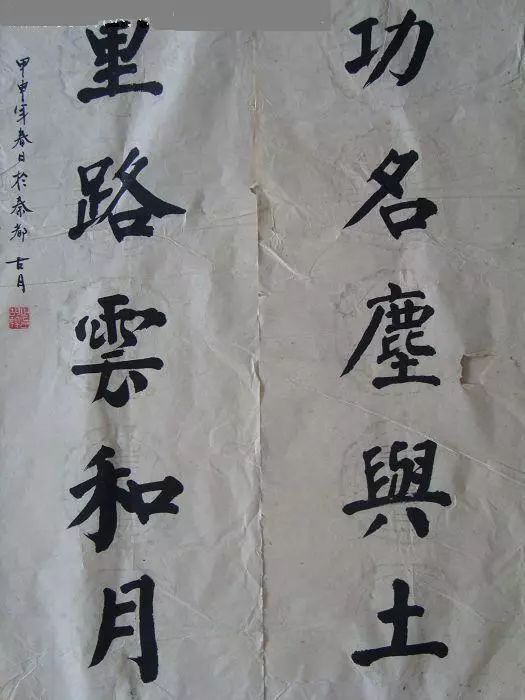 功名塵與土
里路雲和月
甲申年春日於秦都 古月